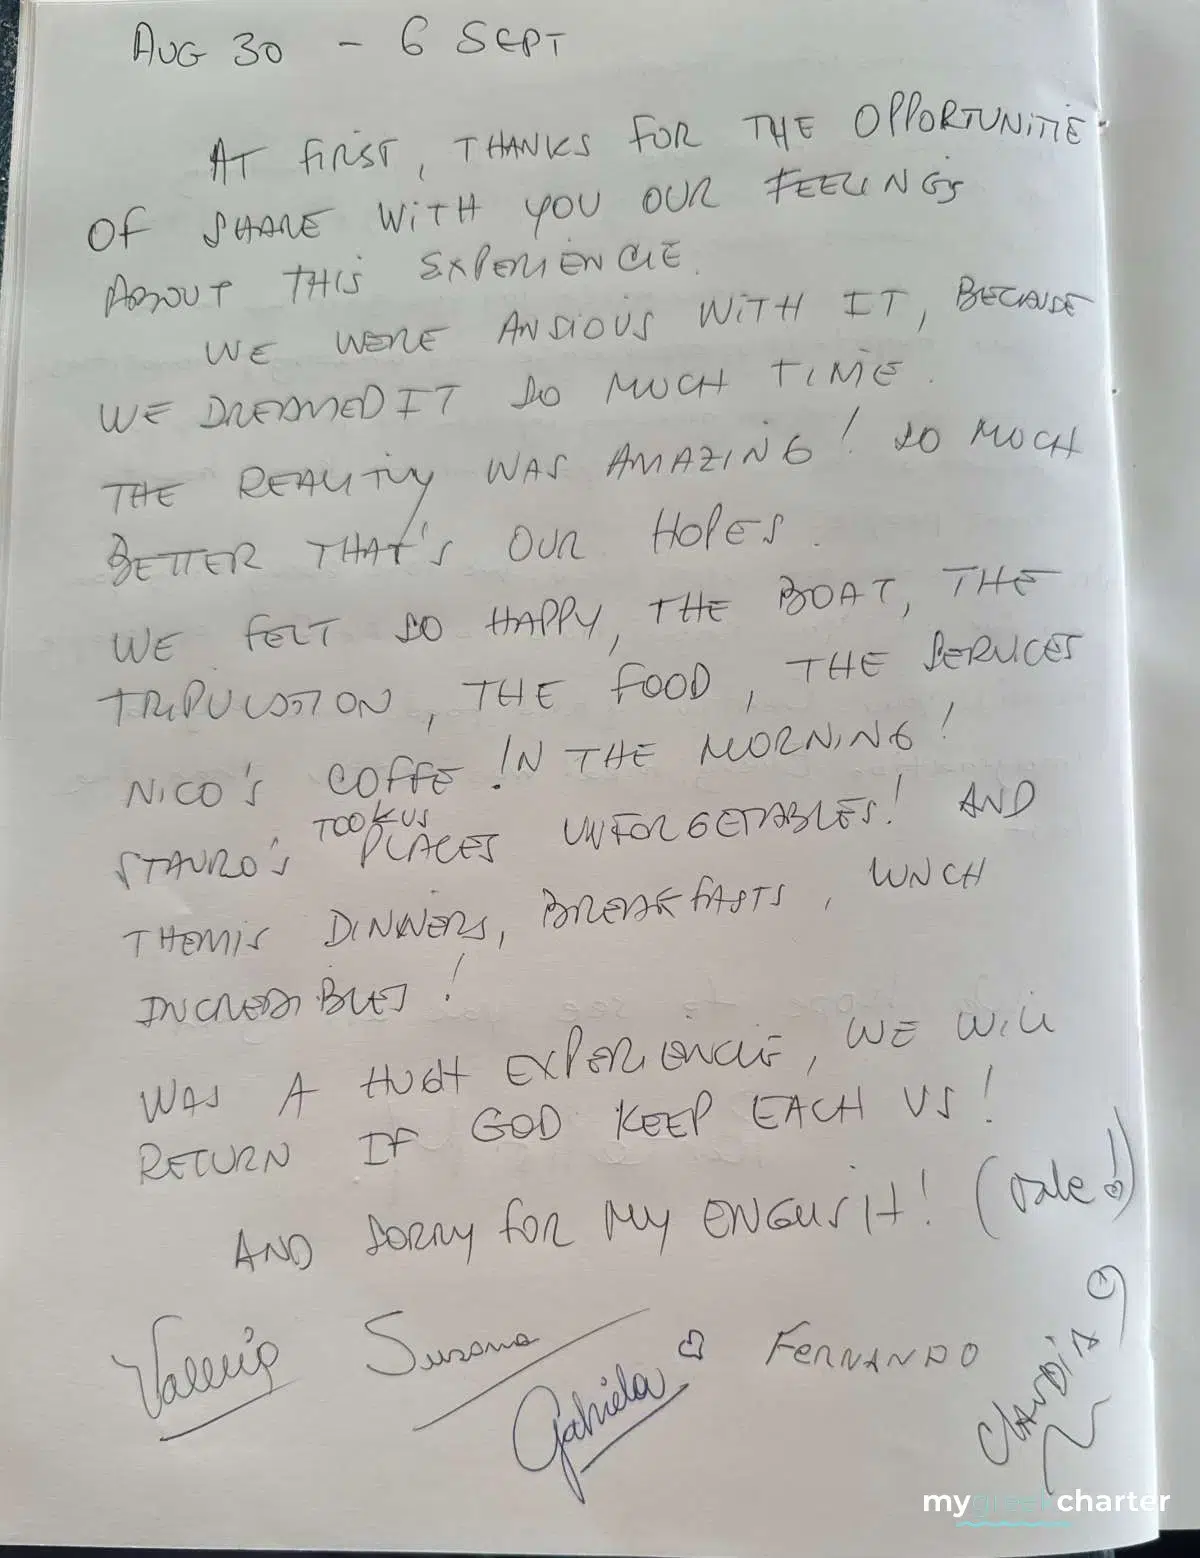 AUG 30 - 6 SEPT
AT FIRST, THANKS FOR THE OPPORTUNITIE
OF SHARE WITH YOU OUR FEELINGS
ABOUT THIS EXPERIENCIE.
WE WERE ANSIOUS WITH IT, BECAUSE
WE DREAMED IT SO MUCH TIME.
THE REALITIY WAS AMAZING! SO MUCH
BETTER THAT'S OUR HOPES.
WE FELT SO HAPPY, THE BOAT, THE
TRIPULATION, THE FOOD, THE SERVICES
NICO'S COFFE IN THE MORNING!
TOOK US
STAVRO'S PLACES UNFORGETABLES! AND
THEMIS DINNERS, BREAKFASTS, LUNCH
INCREDIBLES!
WAS A HUGH EXPERIENCIE, WE WILL
RETURN IF GOD KEEP EACH US!
AND SORRY FOR MY ENGLISH! (Dale!)
Valeria Susana Gabriela FERNANDO CLAUDIA
mygreekcharter